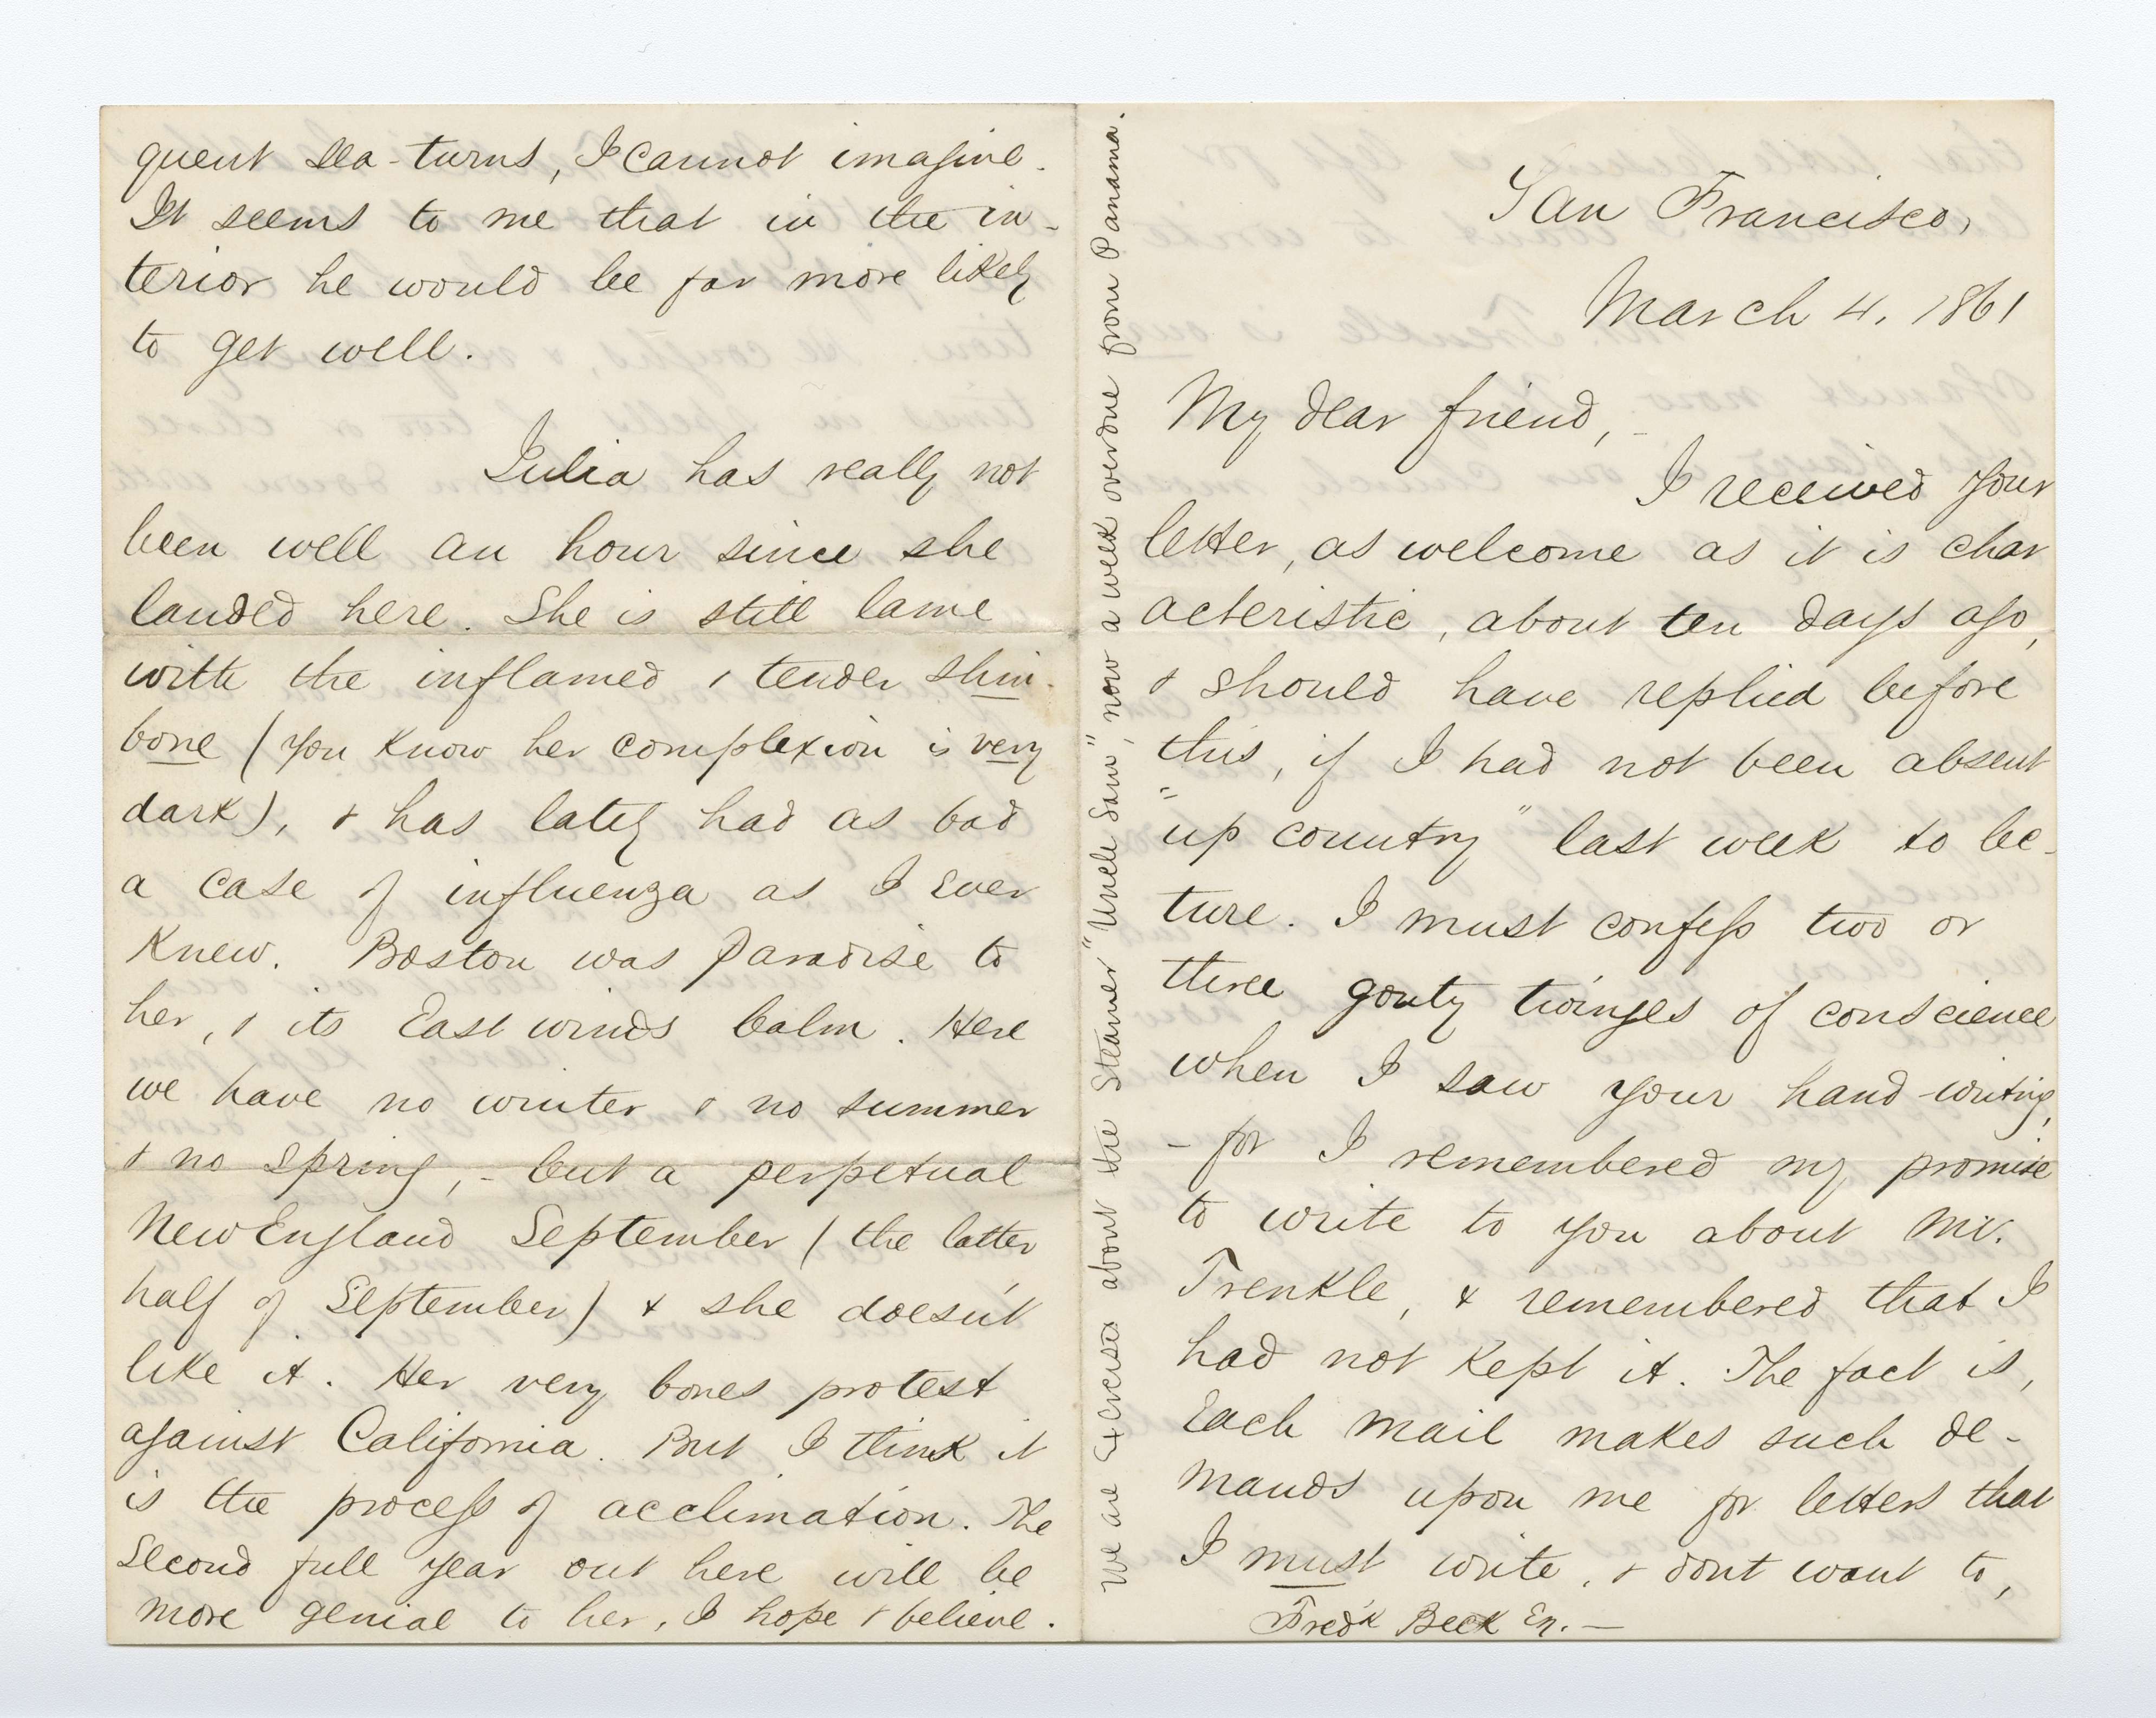 San Francisco,
March 4. 1861
My dear friend,
I received your
letter, as welcome as it is char
acteristic, about ten days ago,
& should have replied before
this, if I had not been absent
"up country" last week to lec-
ture. I must confess two or
three gouty twinges of conscience
when I saw your hand-writing,
- for I remembered my promise
to write to you about Mr.
Trenkle, & remembered that I
had not kept it. The fact is,
Each mail makes such de-
mands upon me for letters that
I must write, & dont want to,
Fred'k Beck Er. —
We are Exercised about the Steamer "Uncle Sam", now a week overdue from Panama.
quent sea-turns, I cannot imagine.
It seems to me that in the in-
terior he would be far more likely
to get well.
Julia has really not
been well an hour since she
landed here. She is still lame
with the inflamed & tender shin-
bone (you know her complexion is very
dark), & has lately had as bad
a case of influenza as I Ever
Knew. Boston was Paradise to
her, & its East winds balm. Here
we have no winter & no summer
& no spring, - but a perpetual
New England September (the latter
half of September) & she does'nt
like it. Her very bones protest
against California. But I think it
is the process of acclimation. The
Second full year out here will be
more genial to her, I hope & believe.